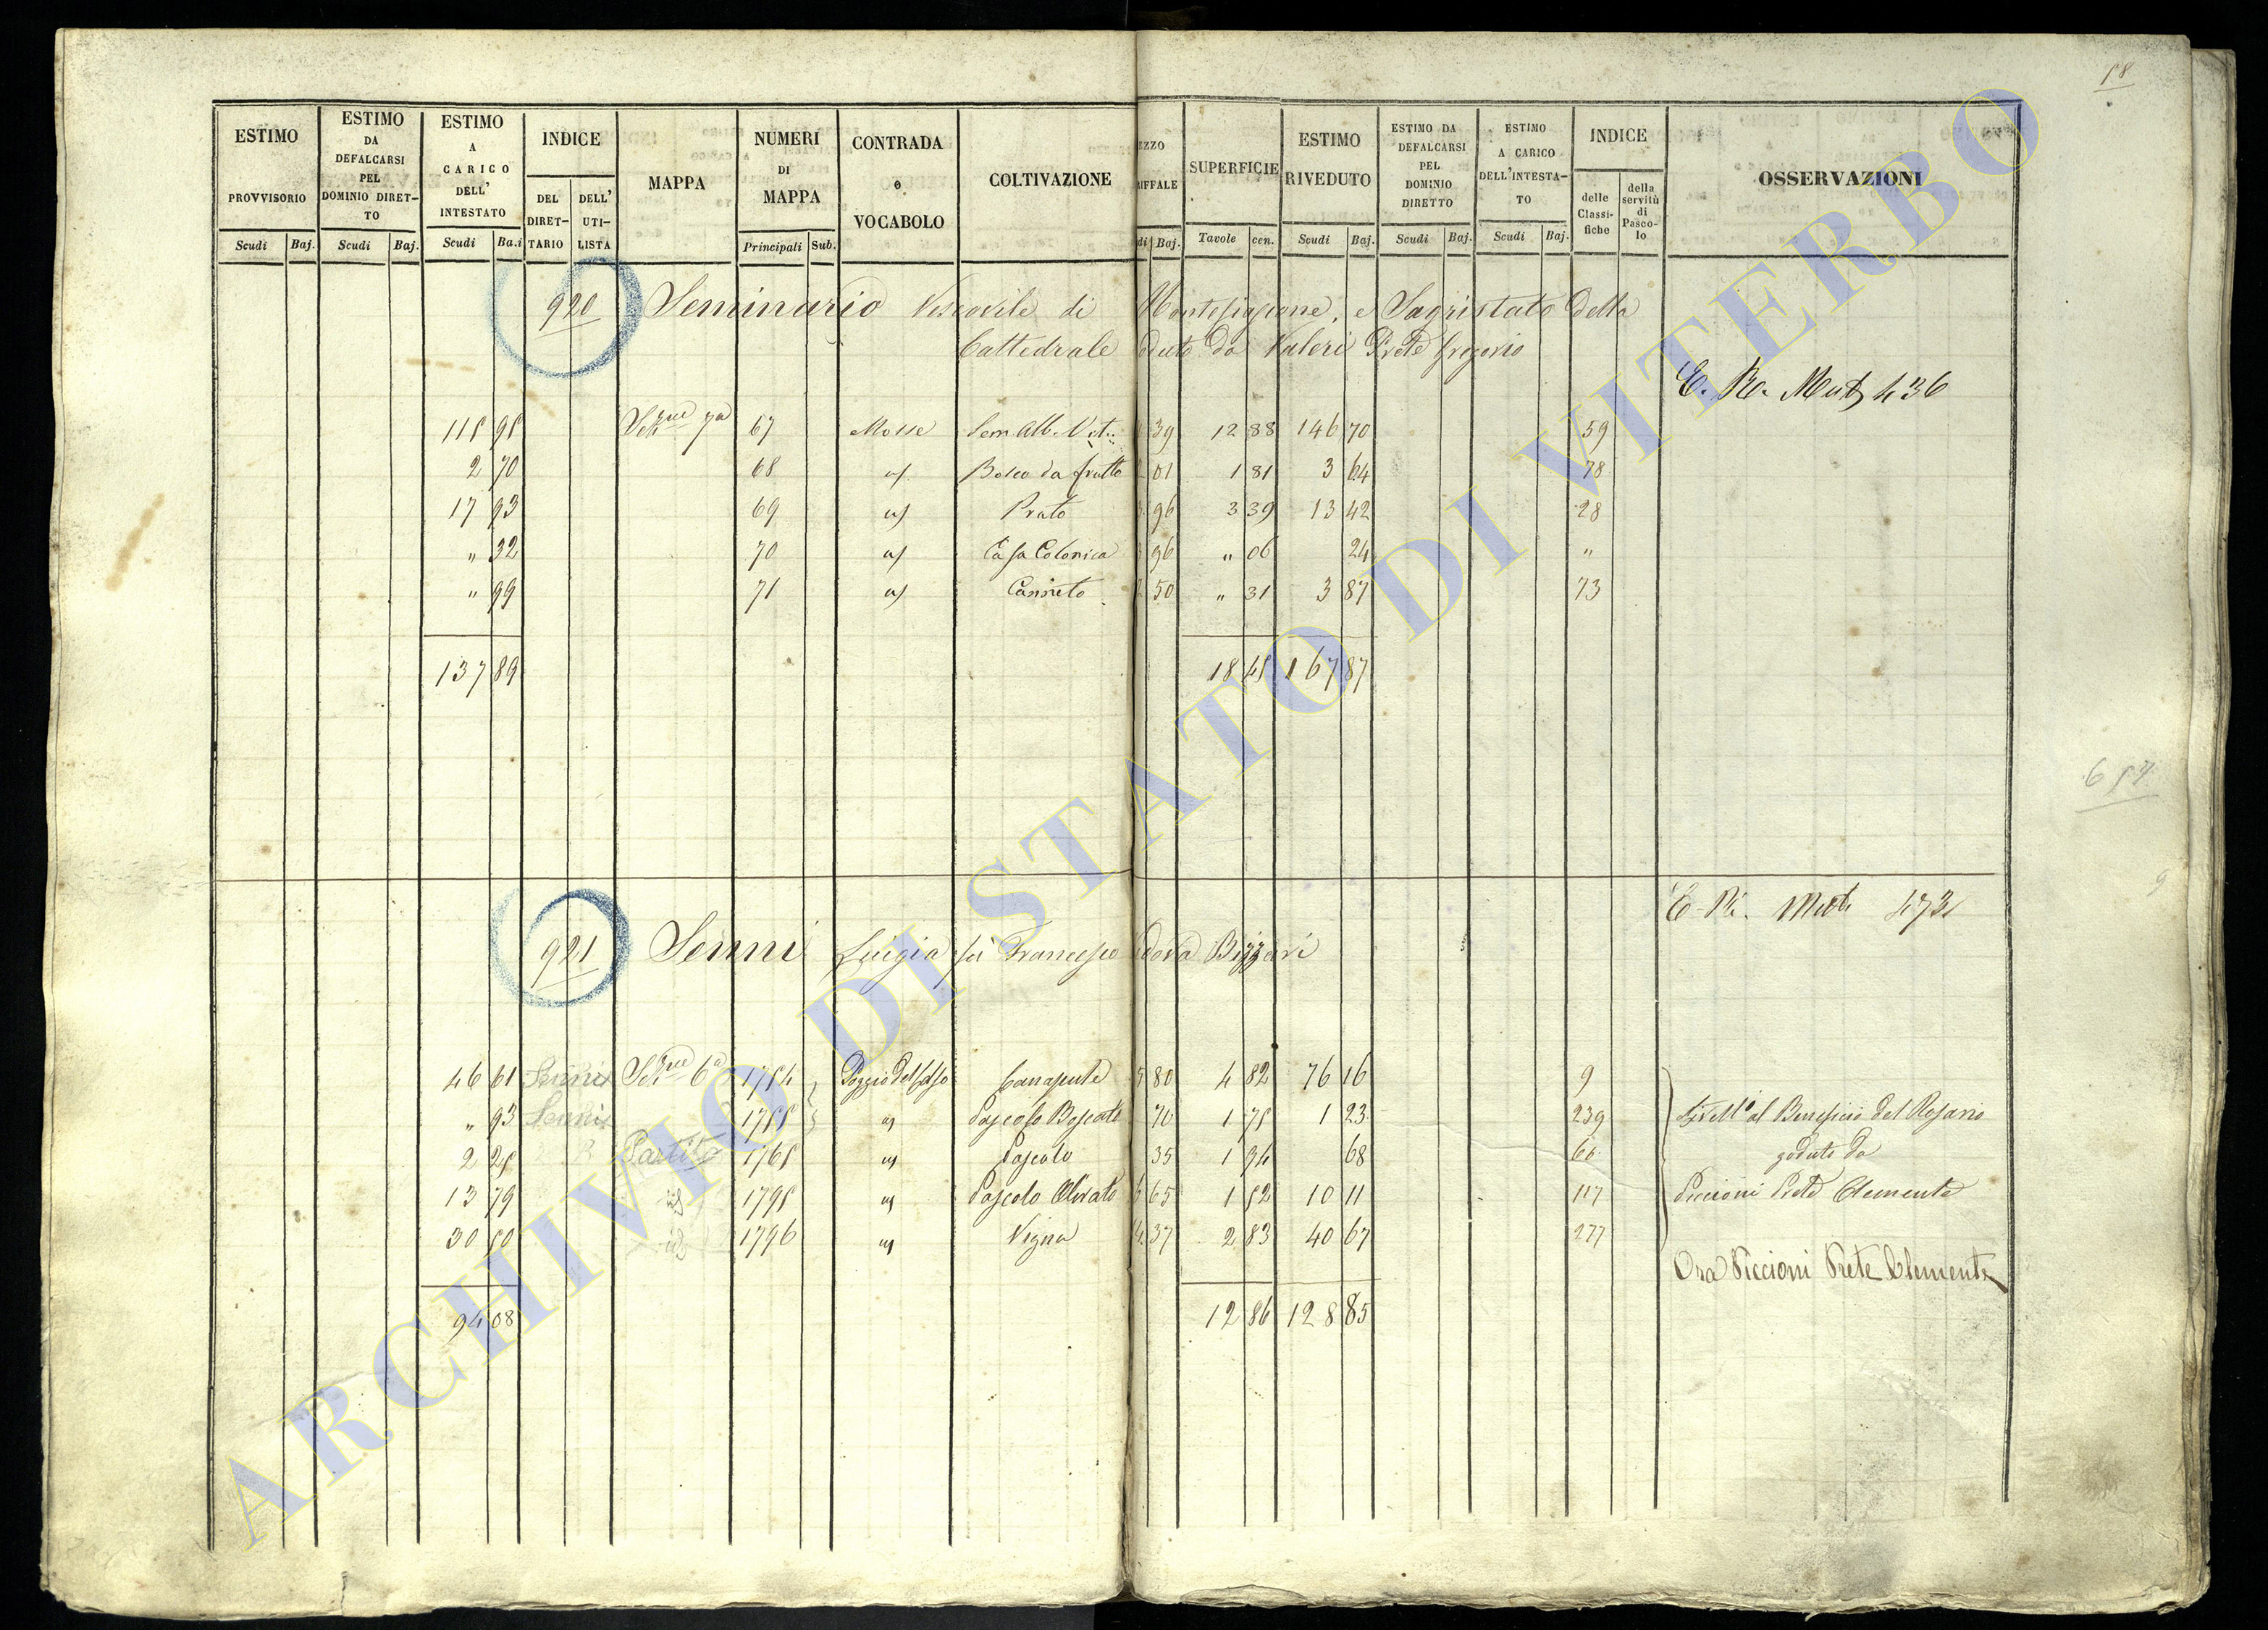 58
ESTIMO PROVVISORIO Scudi Baj.
ESTIMO DA DEFALCARSI PEL DOMINIO DIRET-TO Scudi Baj.
ESTIMO A CARICO DELL' INTESTATO Scudi Ba.i
INDICE DEL DIRET-TARIO DELL' UTI-LISTA
MAPPA
NUMERI DI MAPPA Principali Sub.
CONTRADA o VOCABOLO
COLTIVAZIONE
EZZO RIFFALE di Baj.
SUPERFICIE Tavole cen.
ESTIMO RIVEDUTO Scudi Baj.
ESTIMO DA DEFALCARSI PEL DOMINIO DIRETTO Scudi Baj.
ESTIMO A CARICO DELL'INTESTA-TO Scudi Baj.
INDICE delle Classi-fiche della servitù di Pasco-lo
OSSERVAZIONI
920 Seminario Vescovile di Montefiascone, e Sagristato della
Cattedrale goduto da Valeri Prete Gregorio
E. Re. Mut 436
115 95 Sezne 7a 67 Mosse Sem Alb. Vit. 39 12 88 146 70 59
2 70 68 id Bosco da frutto 01 1 81 3 64 78
17 93 69 id Prato 96 3 39 13 42 28
" 32 70 id Casa Colonica 96 " 06 24 "
" 99 71 id Canneto 50 " 31 3 87 73
137 89 18 45 167 87
657
9
E. Re. Mut 473
921 Senni Luigia fù Francesco vedova Bizzarri
46 61 Sezne 6a 1754 Poggio del Sasso Canapule 80 4 82 76 16 9
" 93 1755 id Pascolo Boscato 70 1 75 1 23 239 Livello al Beneficio del Rosario
2 25 Partita 1765 id Pascolo 35 1 94 68 66 goduto da
13 79 id 1795 id Pascolo Olivato 65 1 52 10 11 117 Piccioni Prete Clemente
30 50 id 1796 id Vigna 37 2 83 40 67 277
Ora Piccioni Prete Clemente
94 08 12 86 128 85
ARCHIVIO DI STATO DI VITERBO